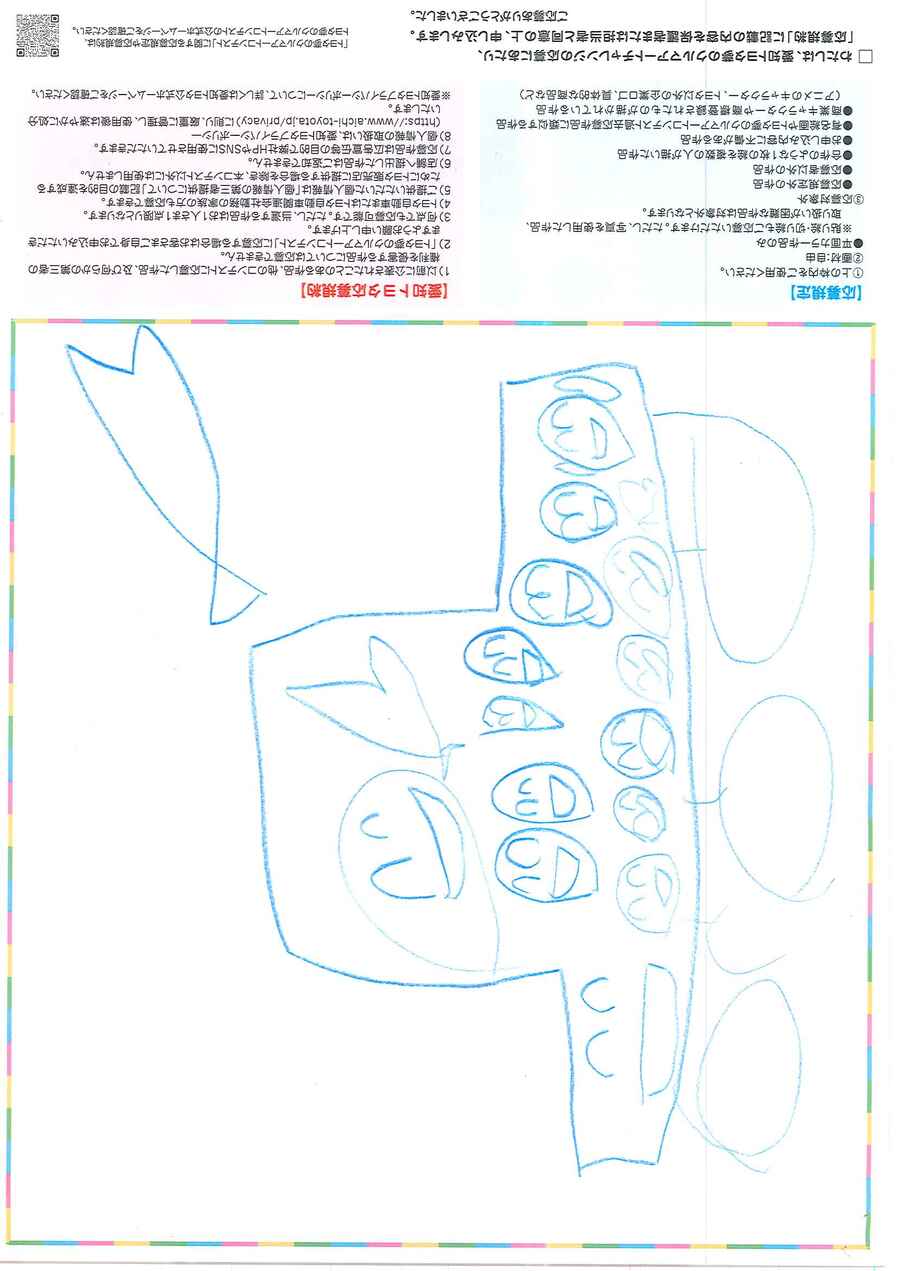 【応募規定】
①上の枠内をご使用ください。
②画材:自由
●平面カラー作品のみ
※貼り絵・切り絵もご応募いただけます。ただし、写真を使用した作品、
取り扱いが困難な作品は対象外となります。
③応募対象外
●応募規定外の作品
●応募者以外の作品
●合作のような1枚の絵を複数の人が描いた作品
●お申し込み内容に不備がある作品
●有名絵画やトヨタ夢のクルマアートコンテスト過去応募作品に類似する作品
●商業キャラクターや商標登録されたものが描かれている作品
(アニメのキャラクター、トヨタ以外の企業ロゴ、具体的な商品など)
【愛知トヨタ応募規約】
1)以前に公表されたことのある作品、他のコンテストに応募した作品、及び何らかの第三者の
権利を侵害する作品については応募できません。
2)「トヨタ夢のクルマアートコンテスト」に応募する場合はお客さまご自身でお申込みいただき
ますようお願い申し上げます。
3)何点でも応募可能です。ただし、当選する作品はお1人さま1点限りとなります。
4)トヨタ自動車またはトヨタ自動車関連会社勤務の家族の方も応募できます。
5)ご提供いただいた個人情報は「個人情報の第三者提供について」記載の目的を達成する
ためにトヨタ販売店に提供する場合を除き、本コンテスト以外には使用しません。
6)店舗へ提出した作品はご返却できません。
7)応募作品は広告宣伝等の目的で弊社HPやSNSに使用させていただきます。
8)個人情報の取扱いは、愛知トヨタプライバシーポリシー
(https://www.aichi-toyota.jp/privacy)に則り、厳重に管理し、使用後は速やかに処分
いたします。
※愛知トヨタプライバシーポリシーについて、詳しくは愛知トヨタ公式ホームページをご確認ください。
□ わたしは、愛知トヨタ夢のクルマアートチャレンジの応募にあたり、
「応募規約」に記載の内容を保護者または担当者と同意の上、申し込みします。
ご応募ありがとうございました。
「トヨタ夢のクルマアートコンテスト」に関する応募規定や応募規約は、
トヨタ夢のクルマアートコンテストの公式ホームページをご確認ください。